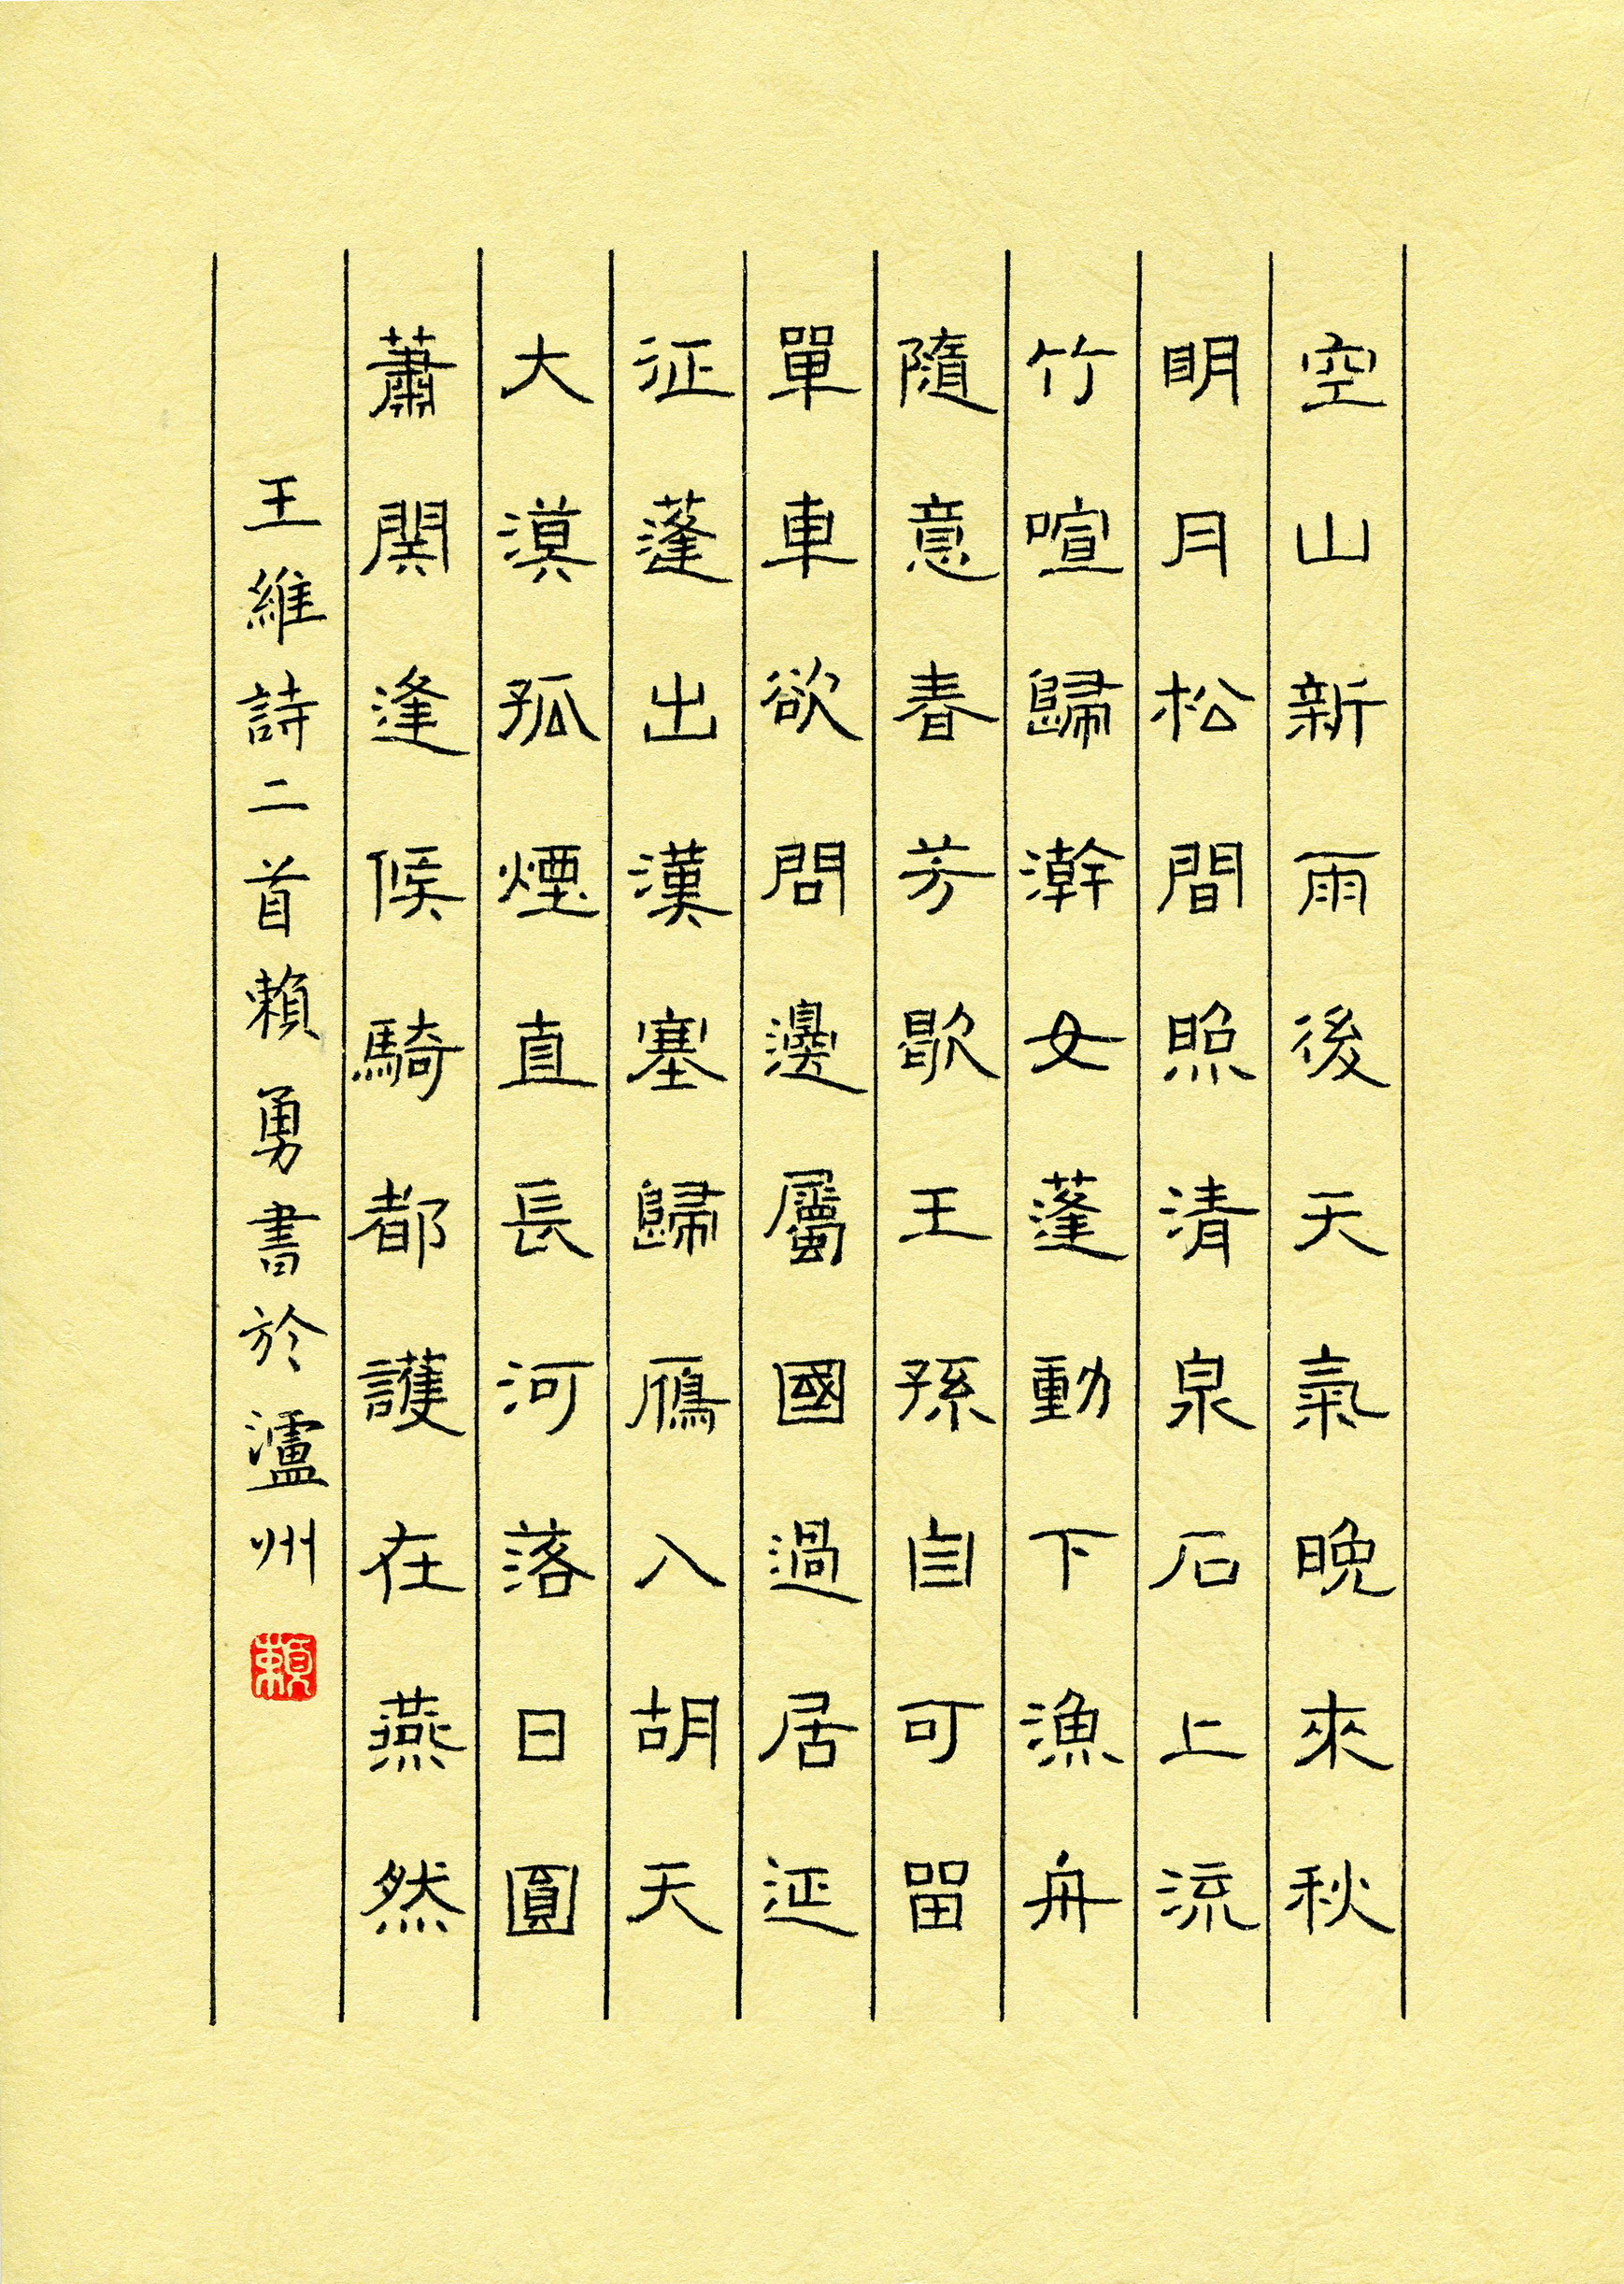 空山新雨後天氣晚來秋
明月松間照清泉石上流
竹喧歸澣女蓬動下漁舟
隨意春芳歇王孫自可留
單車欲問邊屬國過居延
征蓬出漢塞歸鴈入胡天
大漠孤煙直長河落日圓
蕭關逢候騎都護在燕然
王維詩二首賴勇書於瀘州
賴